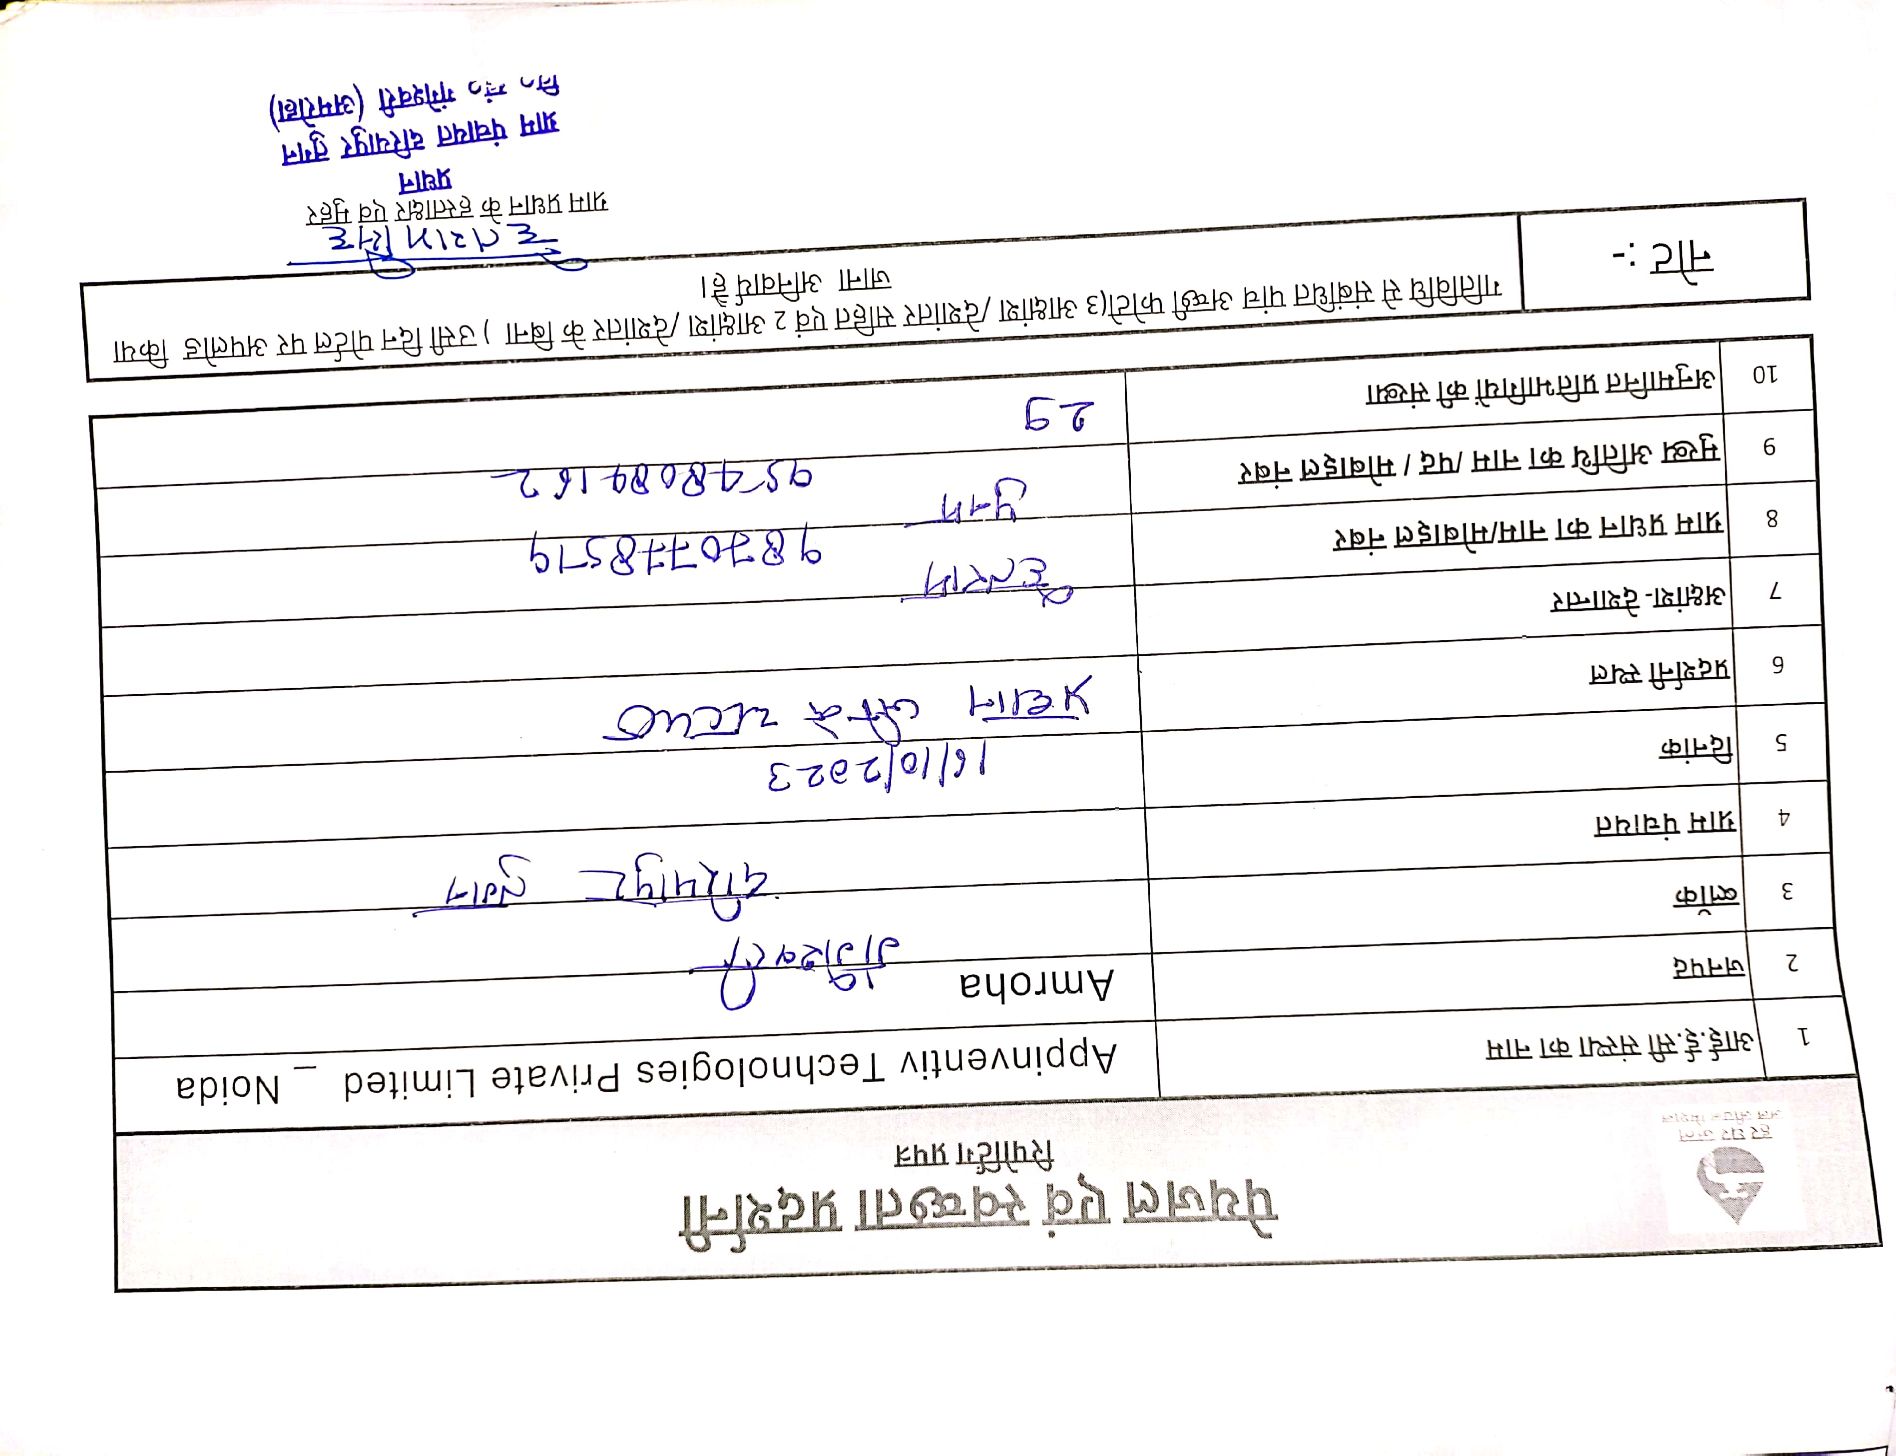 हर घर जल
जल जीवन मिशन
पेयजल एवं स्वच्छता प्रदर्शनी
रिपोर्टिंग प्रपत्र
1 आई.ई.सी संस्था का नाम Appinventiv Technologies Private Limited _ Noida
2 जनपद Amroha
3 ब्लॉक गंगेश्वरी
4 ग्राम पंचायत दरियापुर बुगन
5 दिनांक 16/10/2023
6 प्रदर्शनी स्थल प्रधान जी के
7 अक्षांश- देशान्तर
8 ग्राम प्रधान का नाम/मोबाइल नंबर हेतराम 9870778519
9 मुख्य अतिथि का नाम /पद / मोबाइल नंबर पुनम
10 अनुमानित प्रतिभागियों की संख्या 29
नोट :- गतिविधि से संबंधित पांच अच्छी फोटो(3 आक्षांश /देशांतर सहित एवं 2 आक्षांश /देशांतर के बिना ) उसी दिन पोर्टल पर अपलोड किया
जाना अनिवार्य है।
हेतराम सिंह
ग्राम प्रधान के हस्ताक्षर एवं मुहर
प्रधान
ग्राम पंचायत दरियापुर बुगन
वि० खं० गंगेश्वरी (अमरोहा)